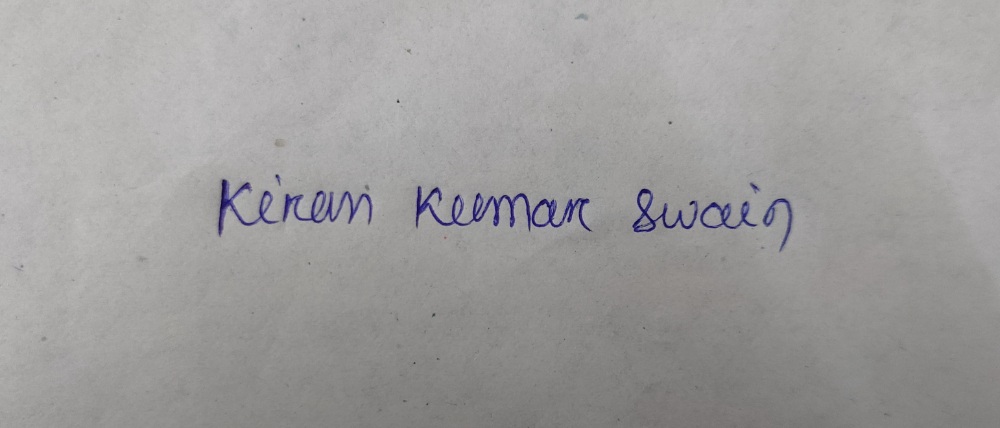 Kiran Kumar Swain